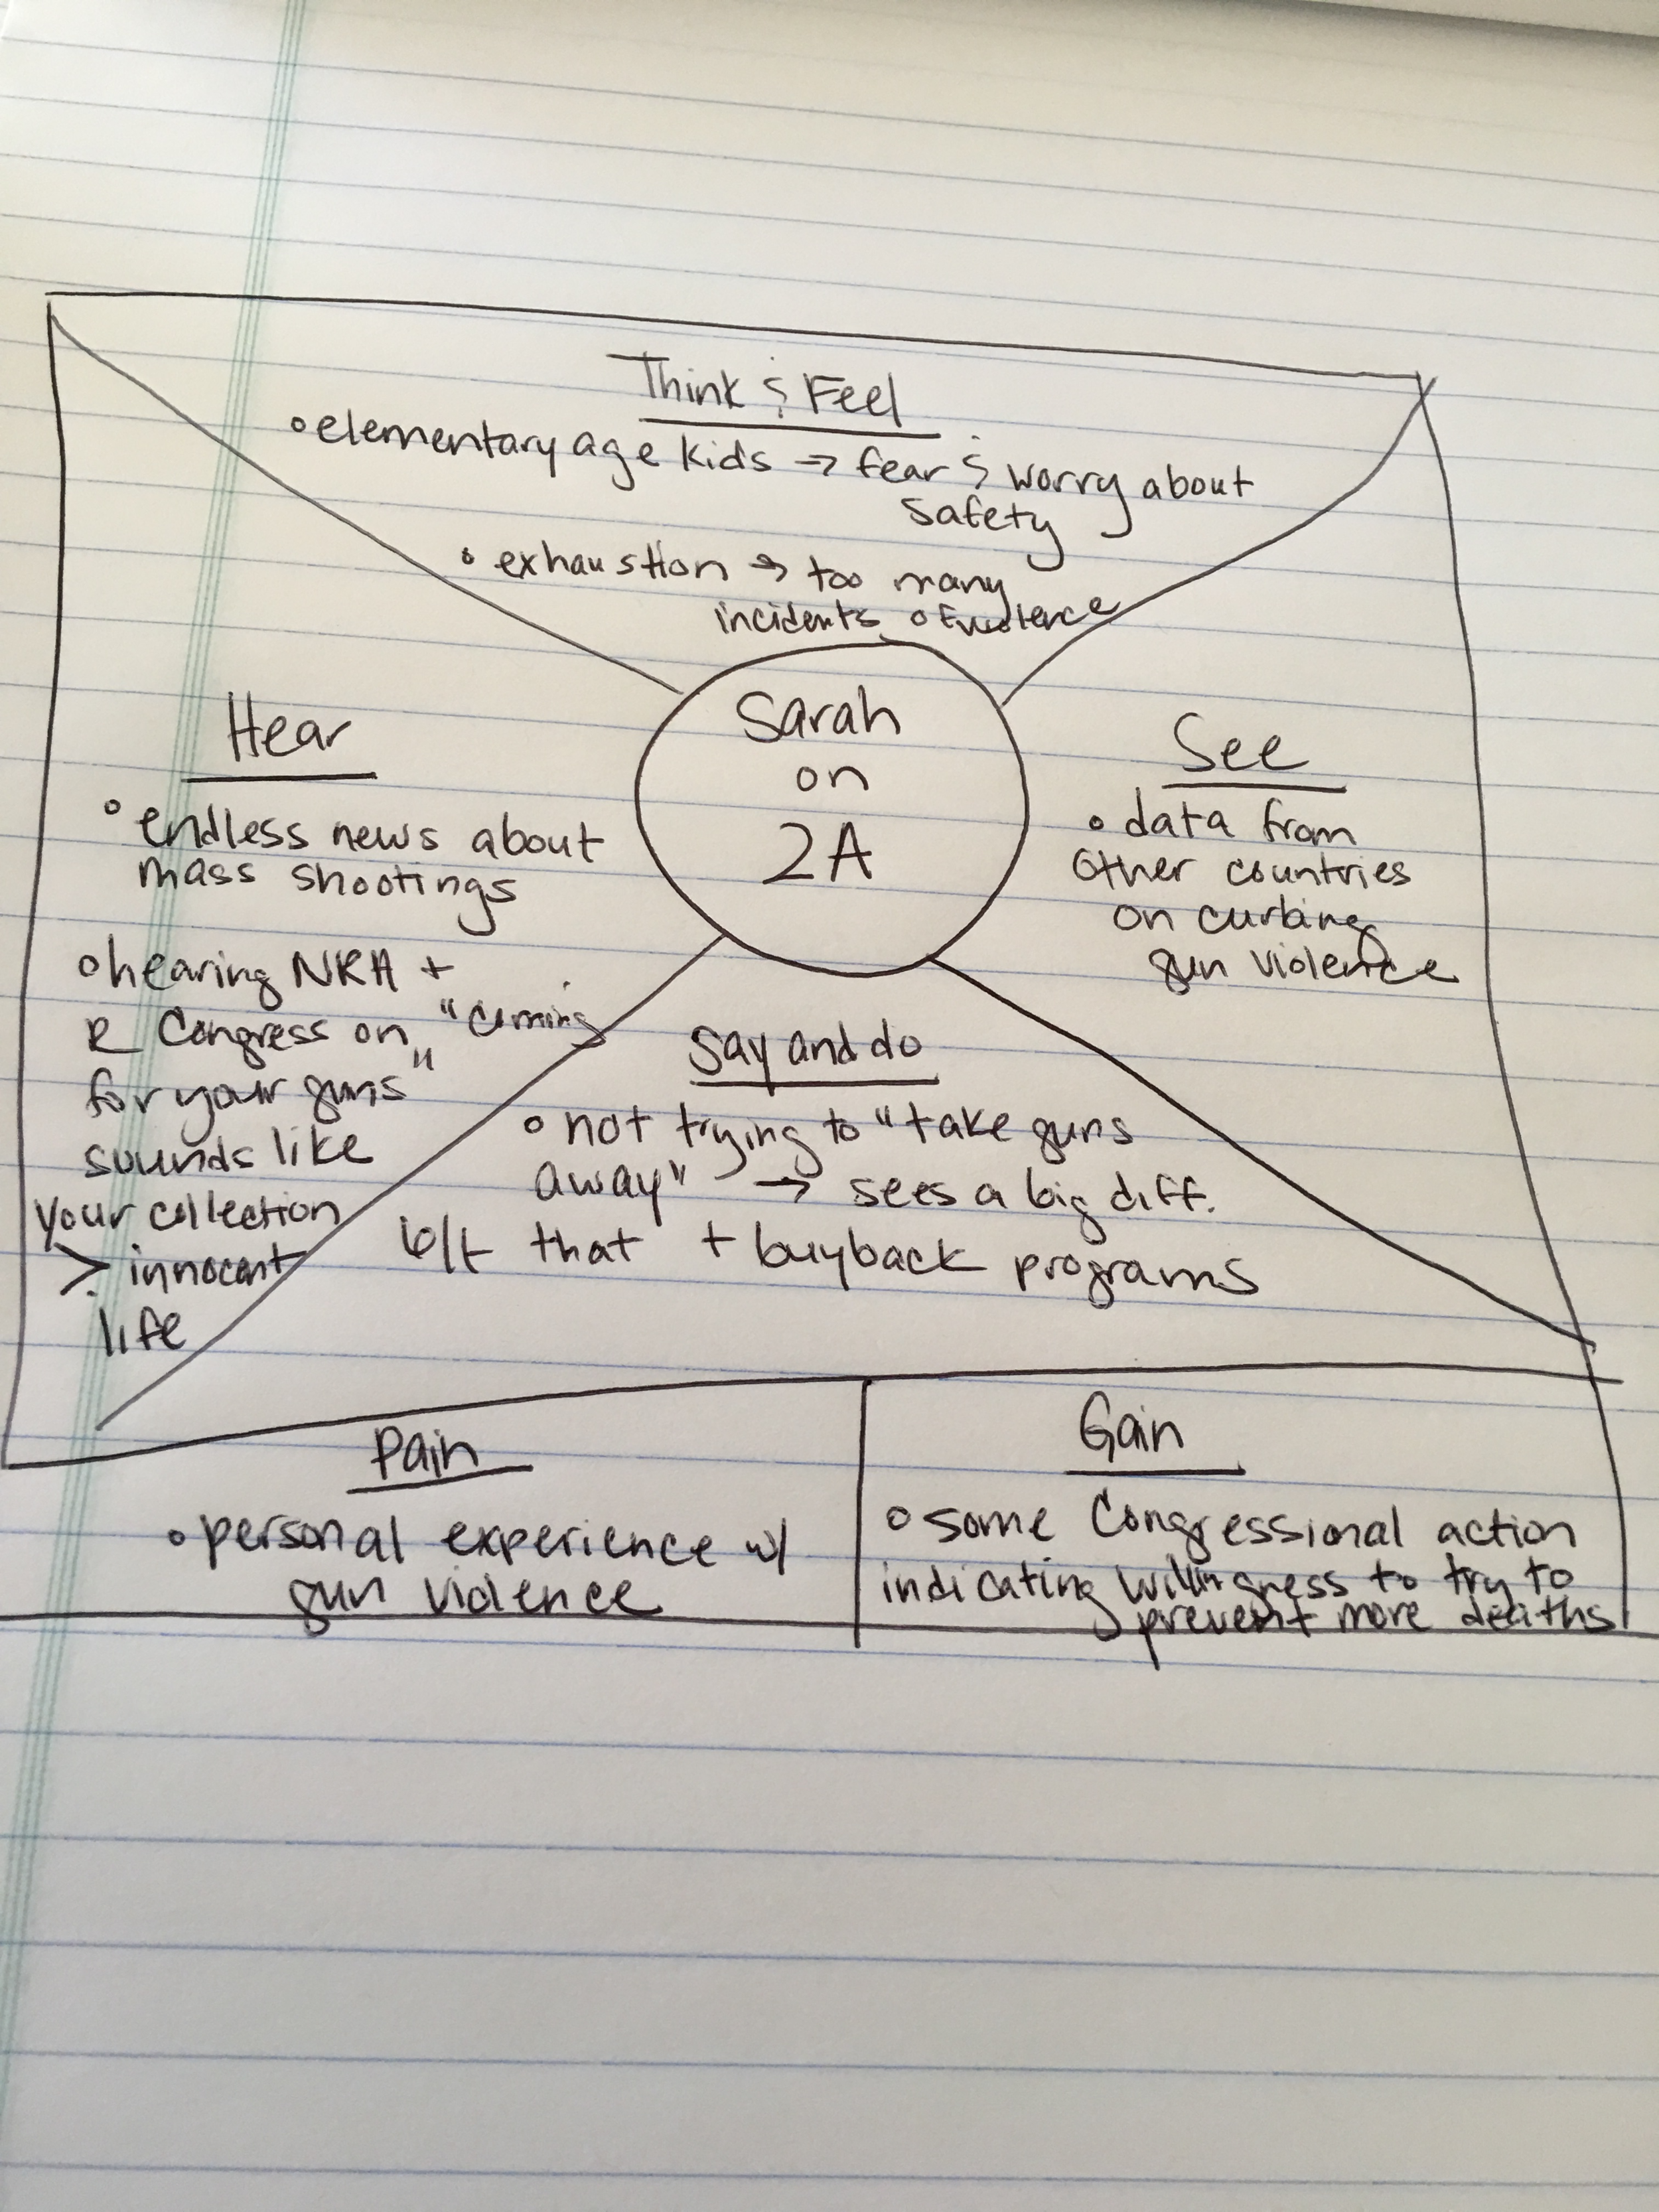 Think & Feel
• elementary age kids → fear & worry about
safety
• exhaustion → too many
incidents of violence
Sarah
on
2A
Hear
• endless news about
mass shootings
• hearing NRA +
R Congress on "coming
for your guns"
sounds like
your collection
> innocent
life
See
• data from
other countries
on curbing
gun violence
Say and do
• not trying to "take guns
away" → sees a big diff.
b/t that + buyback programs
Pain
• personal experience w/
gun violence
Gain
• some Congressional action
indicating willingness to try to
prevent more deaths